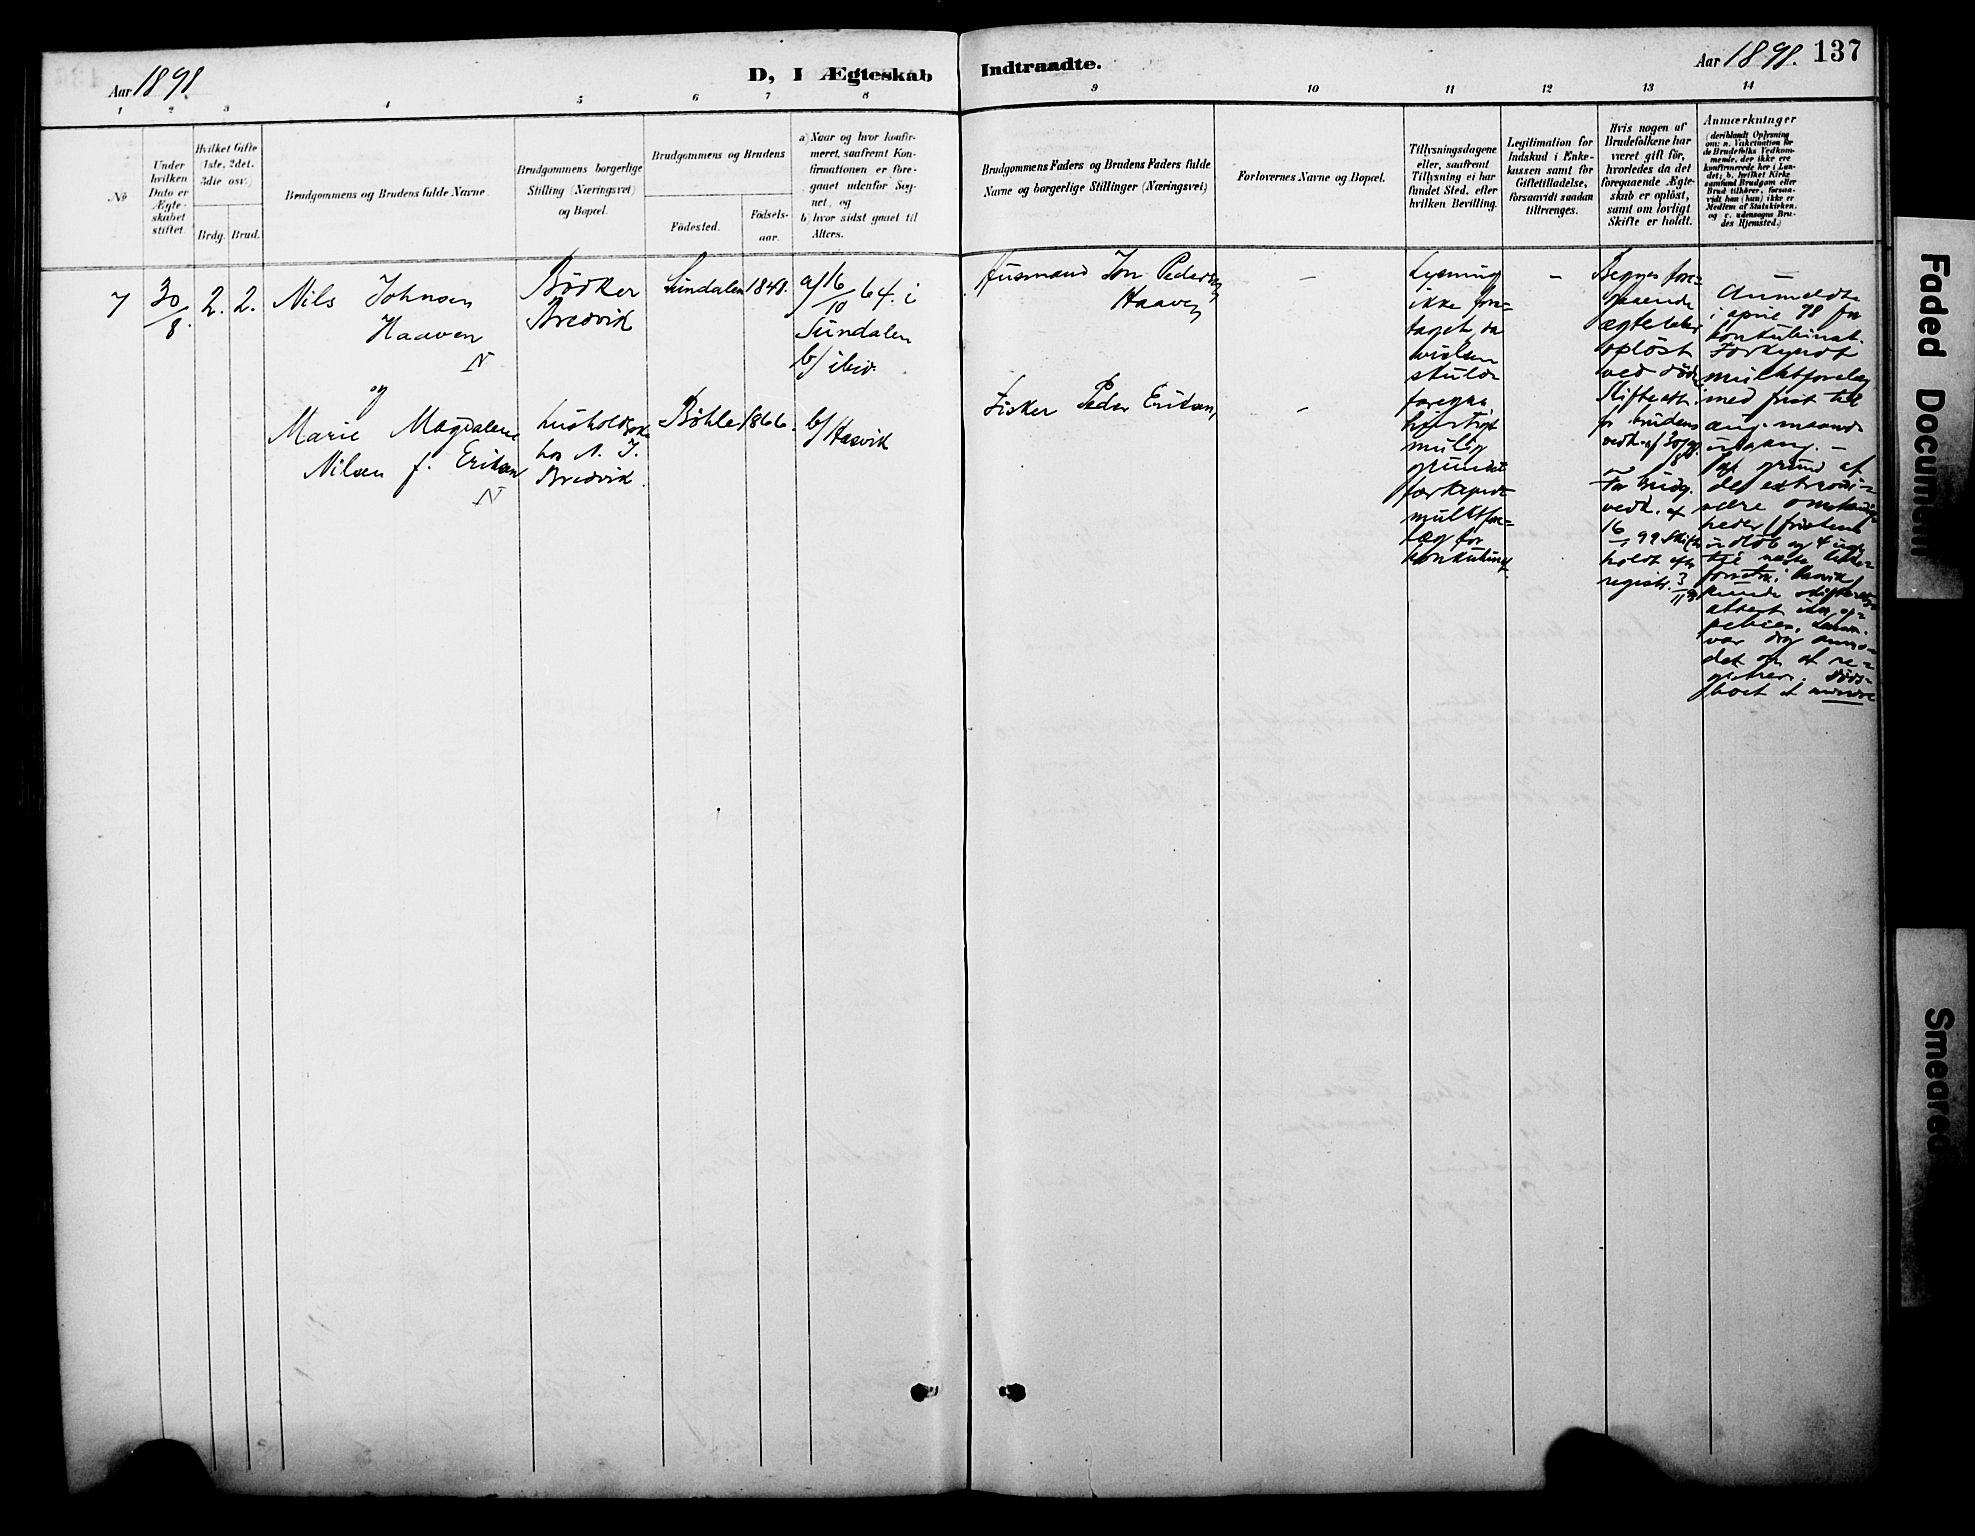 Aar 1898
D, I Ægteskab
Indtraadte.
Aar 1898. 137
1 2 3 4 5 6 7 8 9 10 11 12 13 14
No
Under
hvilken
Dato er
Ægte-
skabet
stiftet
Hvilket Gifte
1ste, 2det,
3die osv.)
Brdg. Brud.
Brudgommens og Brudens fulde Navne
Brudgommens borgerlige
Stilling (Næringsvei)
og Bopæl.
Brudgommens og Brudens
Födested.
Födsels-
aar.
a) Naar og hvor konfir-
meret, saafremt Kon-
firmationen er fore-
gaaet udenfor Sog-
net, og
b) hvor sidst gaaet til
Alters.
Brudgommens Faders og Brudens Faders fulde
Navne og borgerlige Stillinger (Næringsvei)
Forlovernes Navne og Bopæl.
Tillysningsdagene
eller, saafremt
Tillysning ei har
fundet Sted, efter
hvilken Bevilling.
Legitimation for
Indskud i Enke-
kassen samt for
Giftetilladelse,
forsaavidt saadan
tiltrænges.
Hvis nogen af
Brudefolkene har
været gift för,
hvorledes da det
foregaaende Ægte-
skab er oplöst,
samt om lovligt
Skifte er holdt.
Anmærkninger
(deriblandt Oplysning
om: a. Vakcination for
de Brudefolks Vedkom-
mende, der ikke ere
konfirmerede her i Lan-
det; b. hvilket Kirke-
samfund Brudgom eller
Brud tilhörer, forsaa-
vidt han (hun) ikke er
Medlem af Statskirken,
og c. udensogns Bru-
des Hjemsted.)
7
30/8.
2. 2.
Nils Johnsen
Haaven
N
og
Marie Magdalene
Nilsen f. Eriksen
N
Bödker
Bredvik
hos N. J.
Bredvik.
Sundalen 1848.
Böhle 1866.
a/ 16/10 64. i
Sundalen
b/ ibid.
b/ Hasvik
Husmand Jon Pedersen
Haaven
Fisker Peder Eriksen
—
—
Lysning
ikke fore-
taget, da
vielsen
skulde
foregaa
hurtigst
mulig
grundet
forkyndt
mulktfore-
læg for
konkubinat.
—
Begges fore-
gaaende
ægteskaber
oplöst
ved död.
Skifteatt.
for brudens
vedk. af 30/8 98.
For brudg.
vedk. af
16
99 Skifte
holdt efter
registr. 3/11 98
Anmeldte
i april 98 for
konkubinat.
Forkyndt
mulktforelæg
med frist til
aug. maaneds
udgang. —
Paa grund af
de extraordi-
nære omstændig-
heder (fristens
udlöb og 4 uger
til næste
i Hasvik)
kunde skifte-
attest
var dog anmo-
det om at re-
gistrere döds-
boet
Faded Document
Smeared